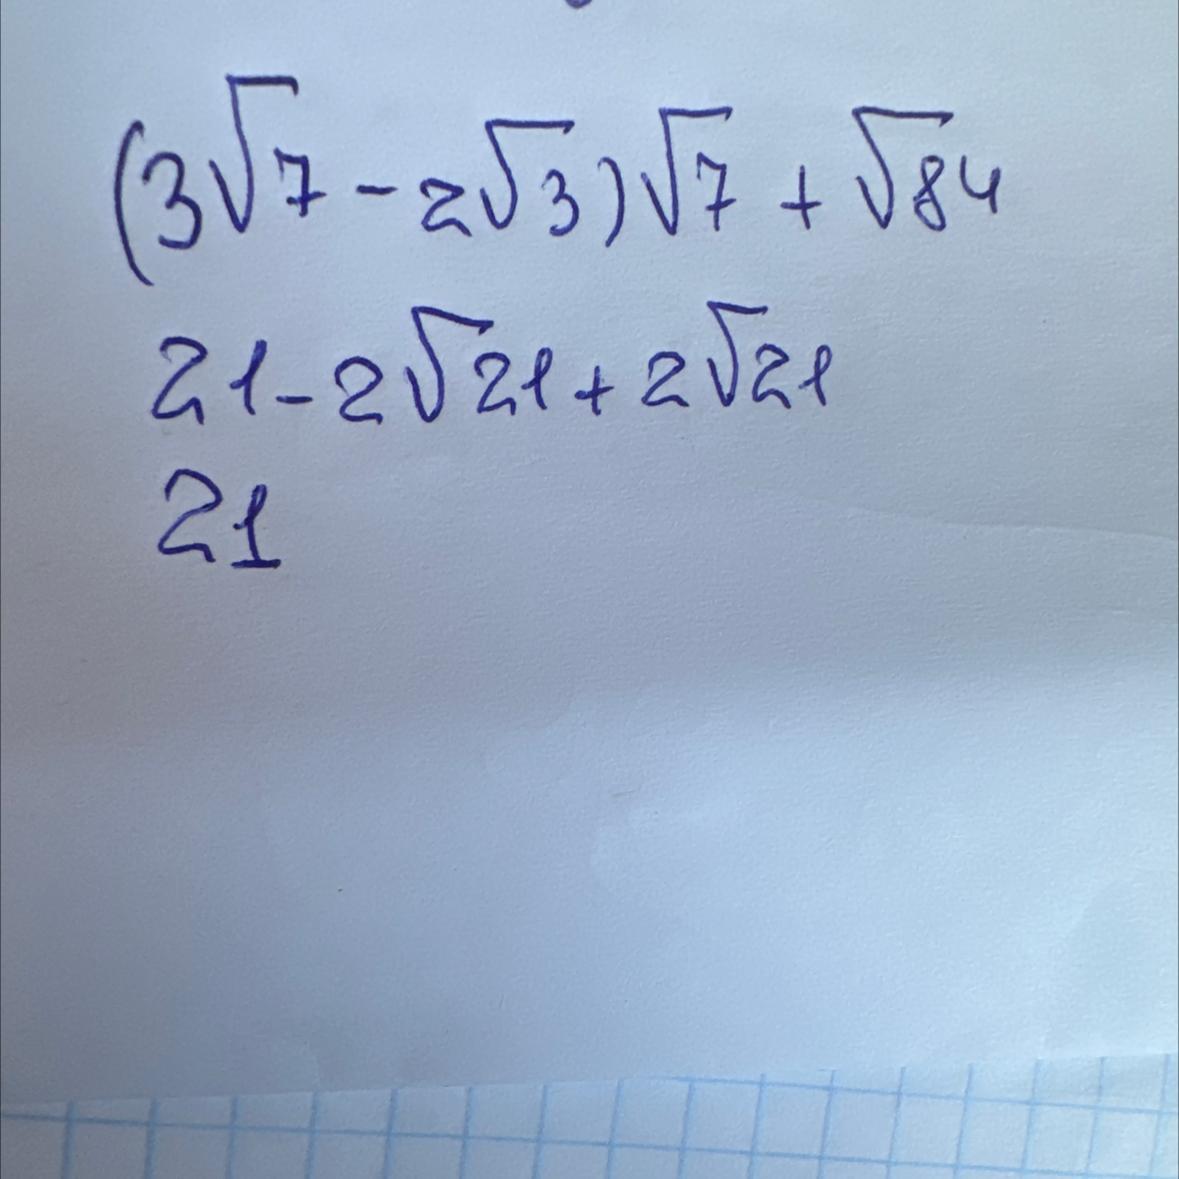 (3√7 - 2√3)√7 + √84
21 - 2√21 + 2√21
21